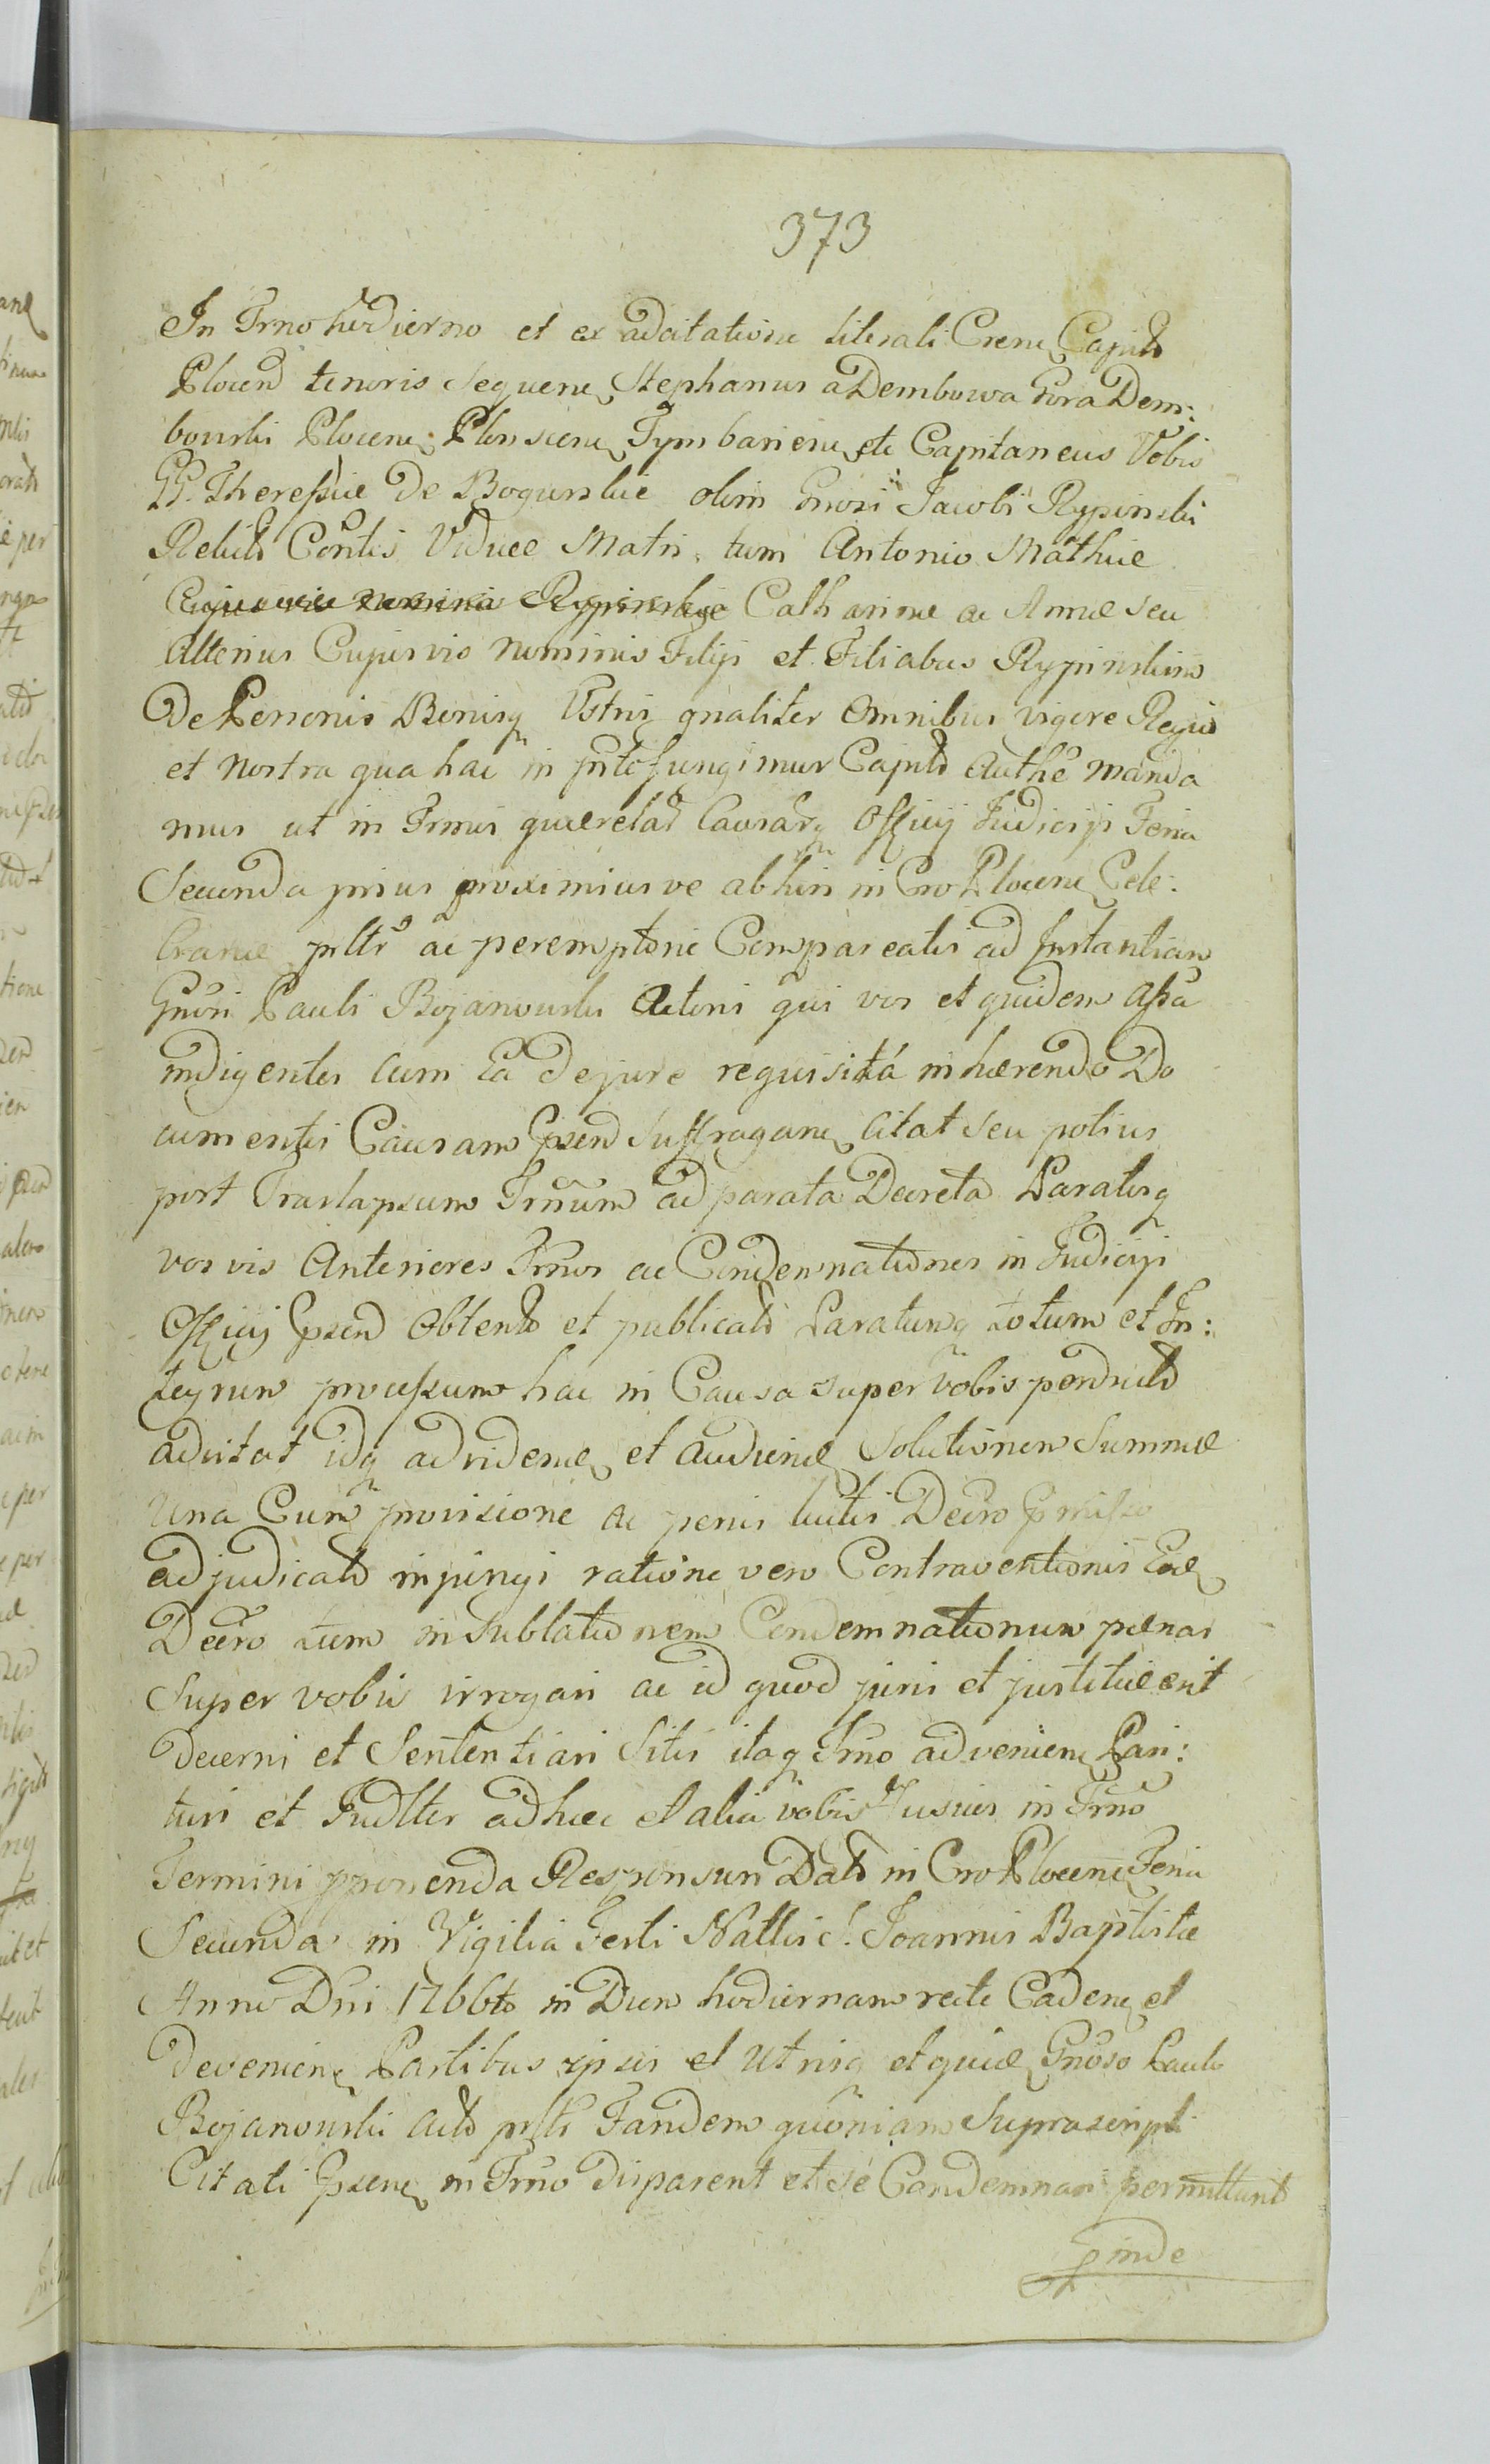 373
In Trno hodierno et ex adcitatione literali Crene Capitd
Plocend tenoris sequene Stephanus a Dembowa Gora Dem:
bowski Plocene: Plonscene Tymbariene etc Capitaneus Vobis
GG. Theressiæ De Bogurskie olim Gnosi Jacobi Rypinski
Relictd Contis Viduæ Matri, tum Antonio Mathiæ
Cujusvis nominis Rypinskie Catharinæ ac Annæ seu
Alterius Cujusvis Nominis Filijs et Filiabus Rypinskim
De Personis Bonisq Vstris gnaliter Omnibus vigore Regia
et Nostra qua hac in prte fungimur Capitd Authe manda
mus ut in Trmis querelad Causarq Officij Judicijs Feria
Secunda prius proximiusve abhin in Cro Plocene Cele:
brane pltr ac peremptorie Compareatis ad Instantiam
Gnosi Pauli Bojanowski Actoris qui vos et quidem assa
indigentes cum Ea de jure requisitá inhærendo Do
cumentis Causam Gsend Suffragane citat seu potius
post Traslapsum Trnum ad parata Decreta Paratasq
vos vis Anteriores Trnos ac Condemnationes in Judicijs
Officij Gsend Obtentd et publicatd Paratumq totum et In:
tegrum processum hac in Causa super vobis perductd
adcitat idq ad videnđ et audienđ Solutionem Summæ
una Cum provisione ac penis luitis Decro Gmisso
adjudicatd injungi ratione vero Contraventionis Eid
Decro tum in sublationem Condemnationum pænas
Super vobis irrogari ac id quod juris et justitiæ erit
decerni et Sententiari Sitis itaq Trno advenienc Pari:
turi et Judlter ad hæc et alia vobis Fusius in Trno
Termini pponenda Responsuri Datd in Cro Plocene Feria
Secunda in Vigilia Festi Natlis S. Joannis Baptistæ
Anno Dni 1766to in Diem hodiernam recte Cadene et
Devenienc Partibus ipsis et Utrisq et quid Gnoso Paulo
Bojanowski Actd prlti Tandem quoniam Suprascripti
Citati Gsene in Trno disparent et sé Condemnari permittunt
Pinde